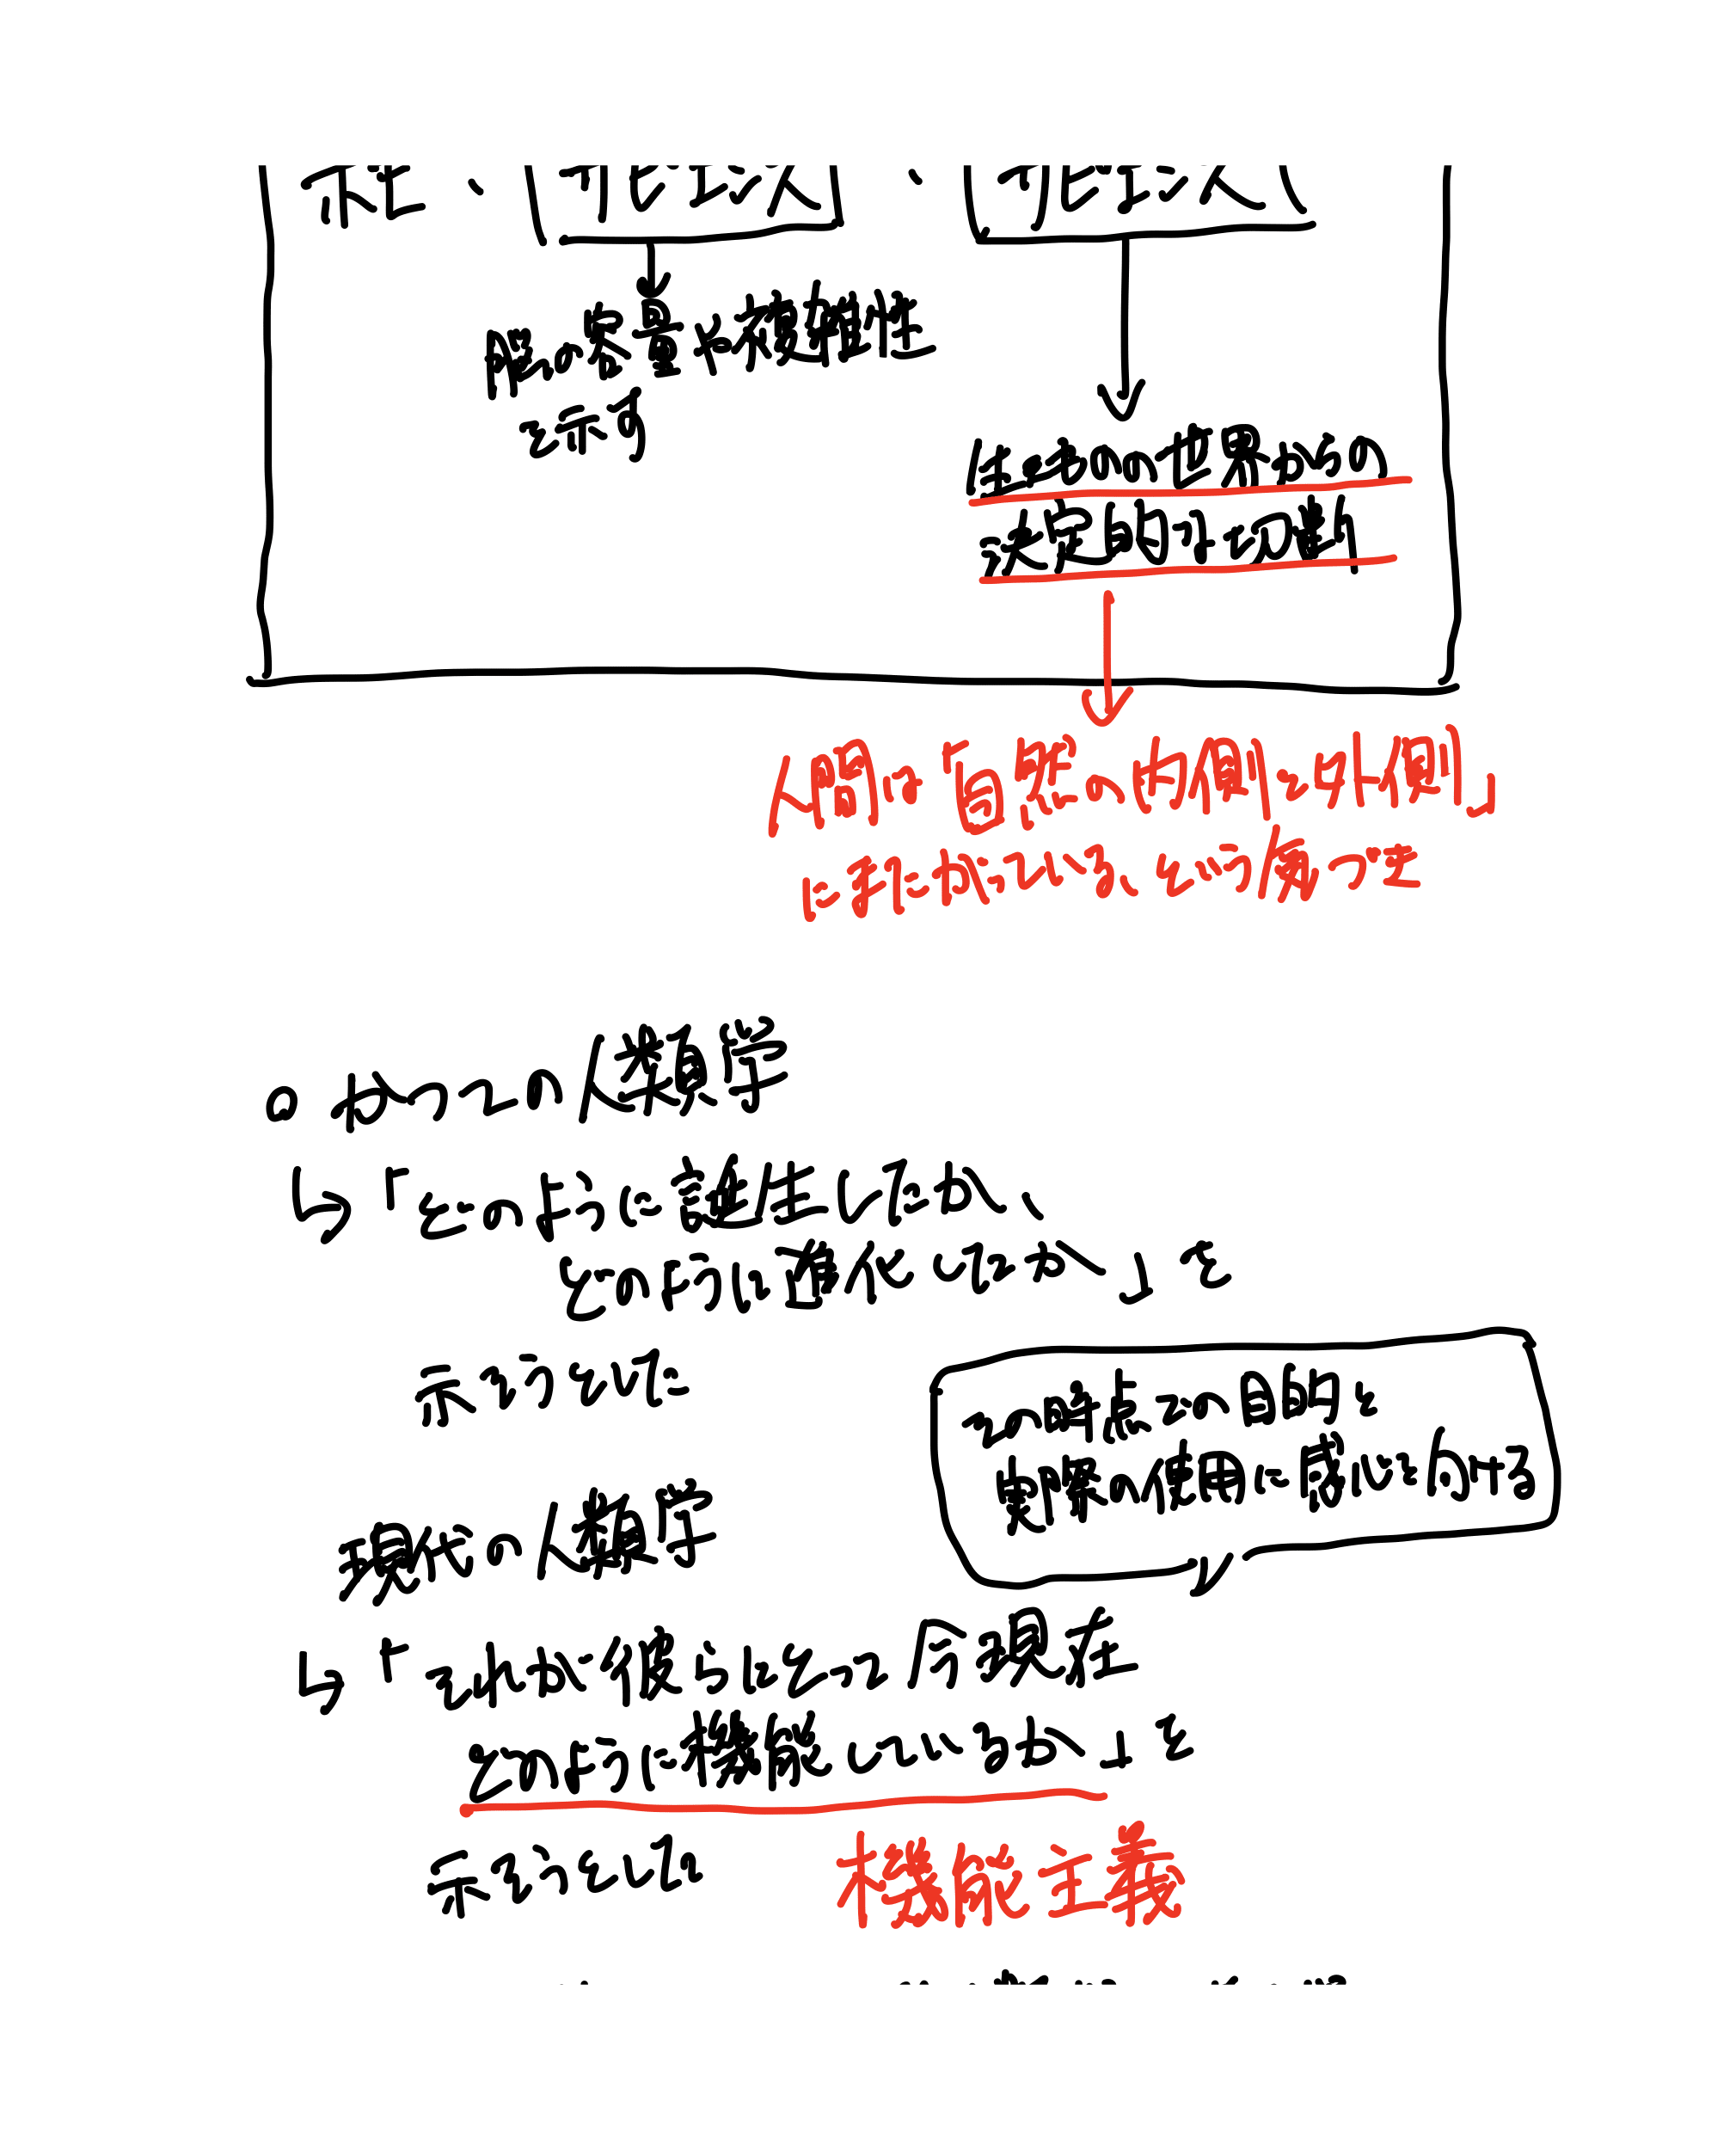 脳の容量や複雑性
を示す
生き物の世界からの
決定的な切断
人間は「自然の内側と外側」
に引き
という
・かつての人類学
↳「どのように誕生したか、
どのように進化したか」を
示そうとした
この時点での目的と
実際の使用に感して分ける
現代の人類学
↳「それが後になって今現在
どのように機能しているか」を
示そうとした
機能主義